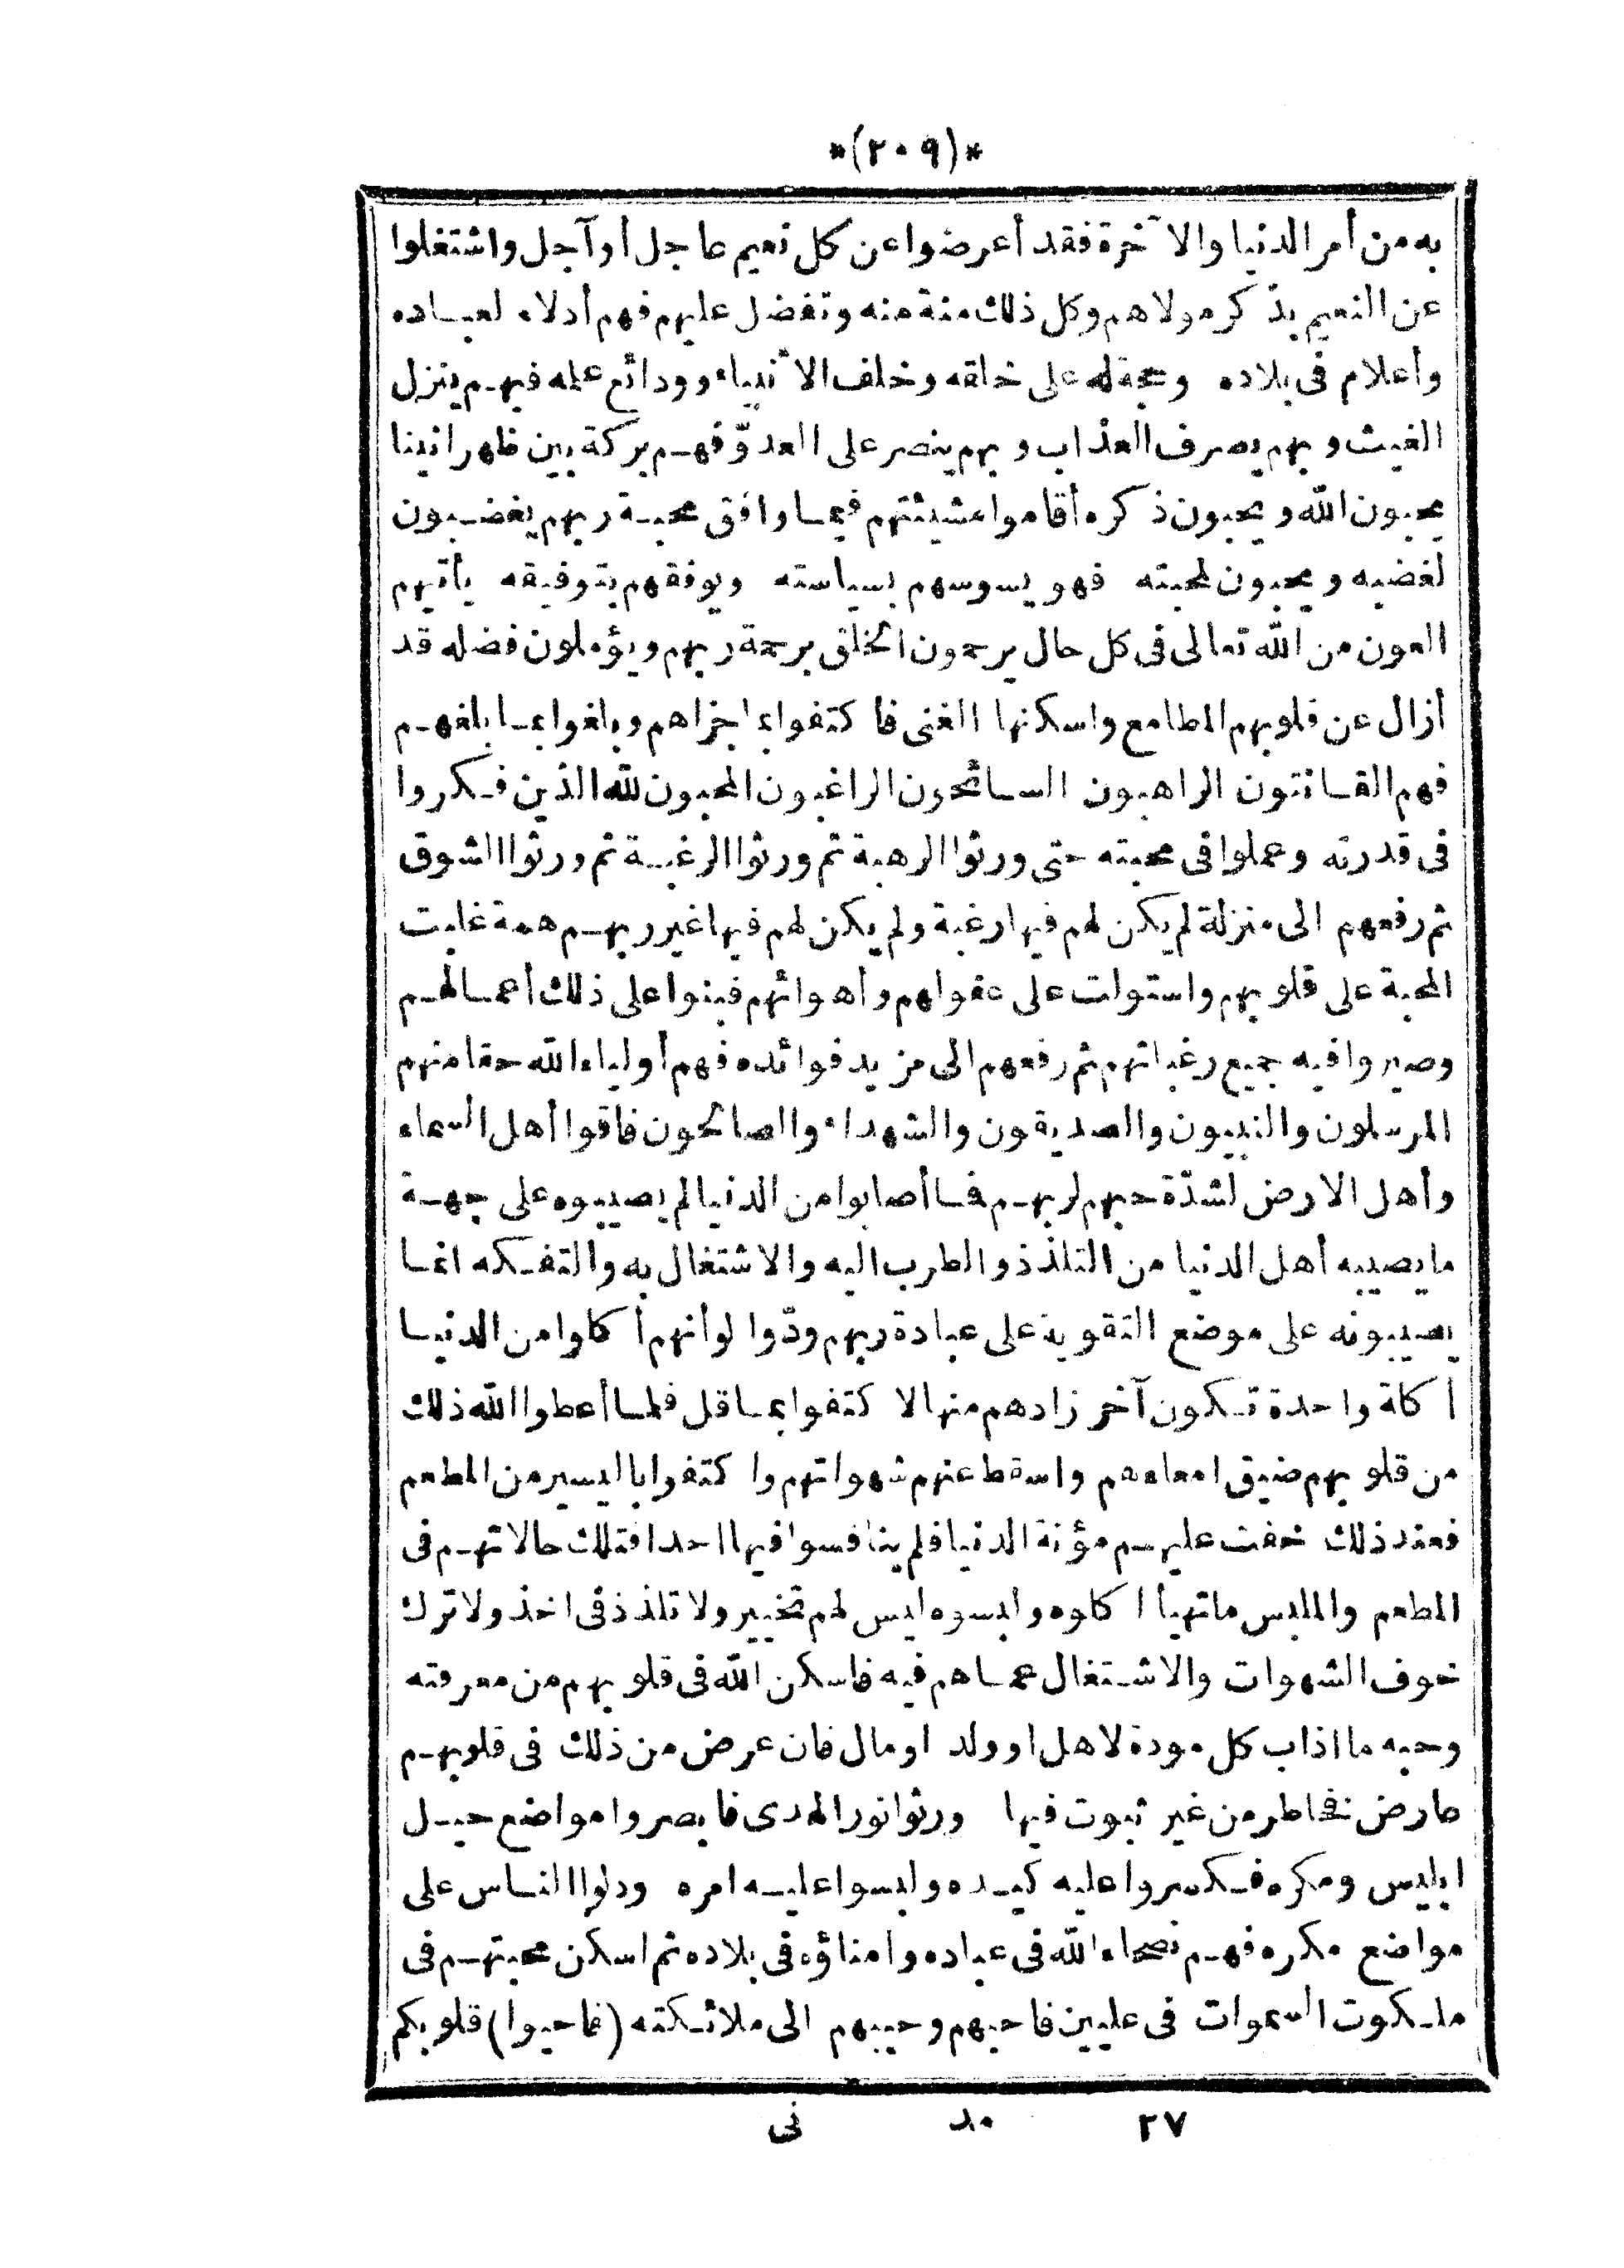 *(٢٠٩)*
به من أمر الدنيا والآخرة فقد أعرضوا عن كل نعيم عاجل أو آجل واشتغلوا
عن النعيم بذكر مولاهم وكل ذلك منة منه وتفضل عليهم فهم أدلاء لعباده
وأعلام فى بلاده وحجة له على خلقه وخلف الأنبياء وودائع علمه فيهم ينزل
الغيث وبهم يصرف العذاب وبهم ينصر على العدوّ فهم بركة بين ظهرانينا
يحبون الله ويحبون ذكره أقاموا مشيئتهم فيما وافق محبة ربهم يغضبون
لغضبه ويحبون لمحبته فهو يسوسهم بسياسته ويوفقهم بتوفيقه يأتيهم
العون من الله تعالى فى كل حال يرحمون الخلق برحمة ربهم ويؤملون فضله قد
أزال عن قلوبهم المطامع واسكنها الغنى فاكتفوا بما اجزاهم وبلغوا بما بلغهم
فهم القانتون الراهبون السائحون الراغبون المحبون لله الذين فكروا
فى قدرته وعملوا فى محبته حتى ورثوا الرهبة ثم ورثوا الرغبة ثم ورثوا الشوق
ثم رفعهم الى منزلة لم يكن لهم فيها رغبة ولم يكن لهم فيها غير ربهم همة غلبت
المحبة على قلوبهم واستولت على عقولهم وأهوائهم فبنوا على ذلك أعمالهم
وصيروا فيه جميع رغباتهم ثم رفعهم الى مزيد فوائده فهم أولياء الله حقا منهم
المرسلون والنبيون والصديقون والشهداء والصالحون فاقوا أهل السماء
وأهل الارض لشدّة حبهم لربهم فما أصابوا من الدنيا لم يصيبوه على جهة
ما يصيبه أهل الدنيا من التلذذ والطرب اليه والاشتغال به والتفكه انما
يصيبونه على موضع التقوية على عبادة ربهم ودّوا لو أنهم أكلوا من الدنيا
أكلة واحدة تكون آخر زادهم منها لاكتفوا بما قل فلما أعطوا الله ذلك
من قلوبهم ضيق امعاءهم واسقط عنهم شهواتهم واكتفوا باليسير من المطعم
فعند ذلك خفت عليهم مؤنة الدنيا فلم ينافسوا فيها احدا فتلك حالاتهم فى
المطعم والملبس ما تهيأ أكلوه ولبسوه ليس لهم تخيير ولا تلذذ فى اخذ ولا ترك
خوف الشهوات والاشتغال عما هم فيه فاسكن الله فى قلوبهم من معرفته
وحبه ما اذاب كل مودة لاهل او ولد او مال فان عرض من ذلك فى قلوبهم
عارض فخاطر من غير ثبوت فيها ورثوا نور الهدى فابصروا مواضع حيل
ابليس ومكره فكسروا عليه كيده ولبسوا عليه امره ودلوا الناس على
مواضع مكره فهم نصحاء الله فى عباده وامناؤه فى بلاده ثم اسكن محبتهم فى
ملكوت السموات فى عليين فاحبهم وحببهم الى ملائكته (فاحيوا) قلوبكم
٢٧ مد نى